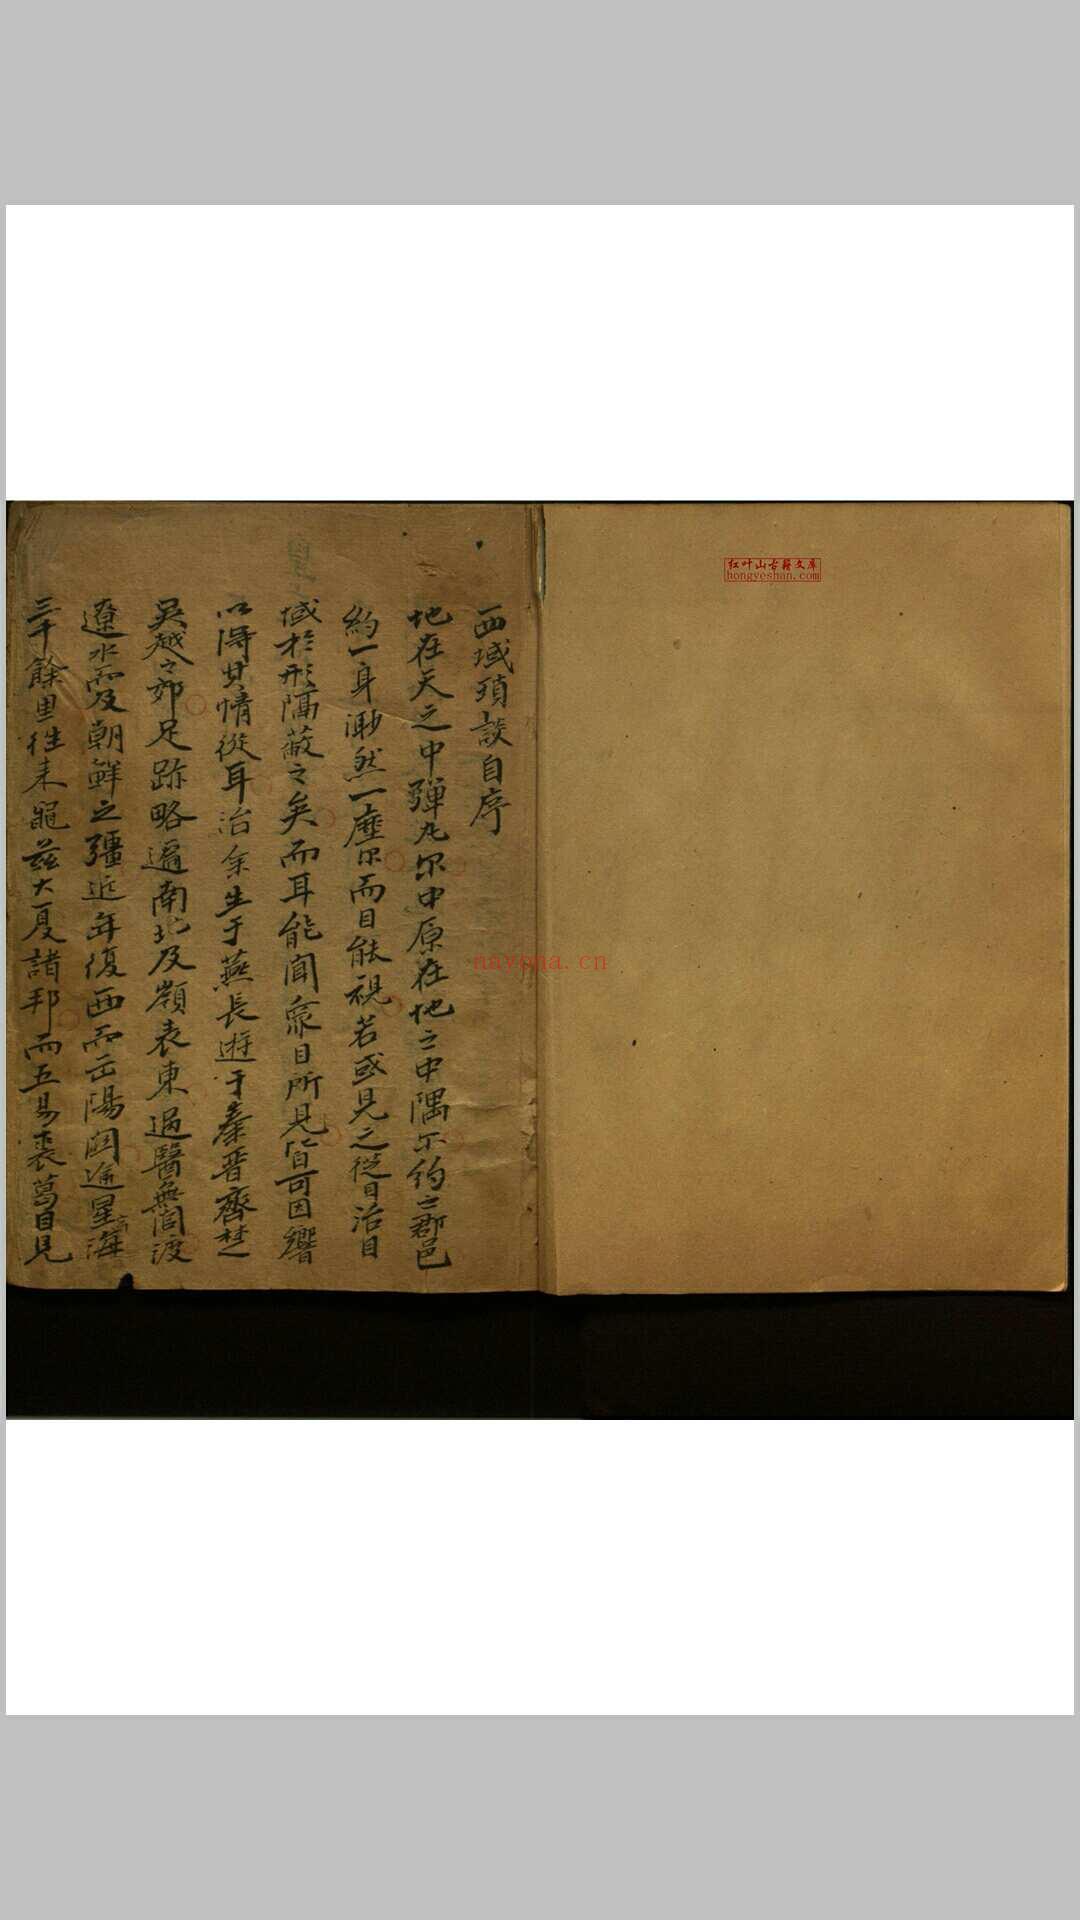 西域瑣談自序
地在天之中彈丸尔中原在地之中隅尔約之郡邑
約一身渺然一塵尔而目能視若或見之從目治目
域於形隔蔽之矣而耳能闻衆目所見皆可因響
以得其情從耳治余生于燕長遊于秦晋齊楚
吳越之郊足跡略遍南北及嶺表東過醫無閭渡
遼水而及朝鮮之疆近年復西而出陽関逾星海
三千餘里往来龜兹大夏諸邦而五易裘葛目見
红叶山古籍文库
hongyeshan.com
nayona.cn